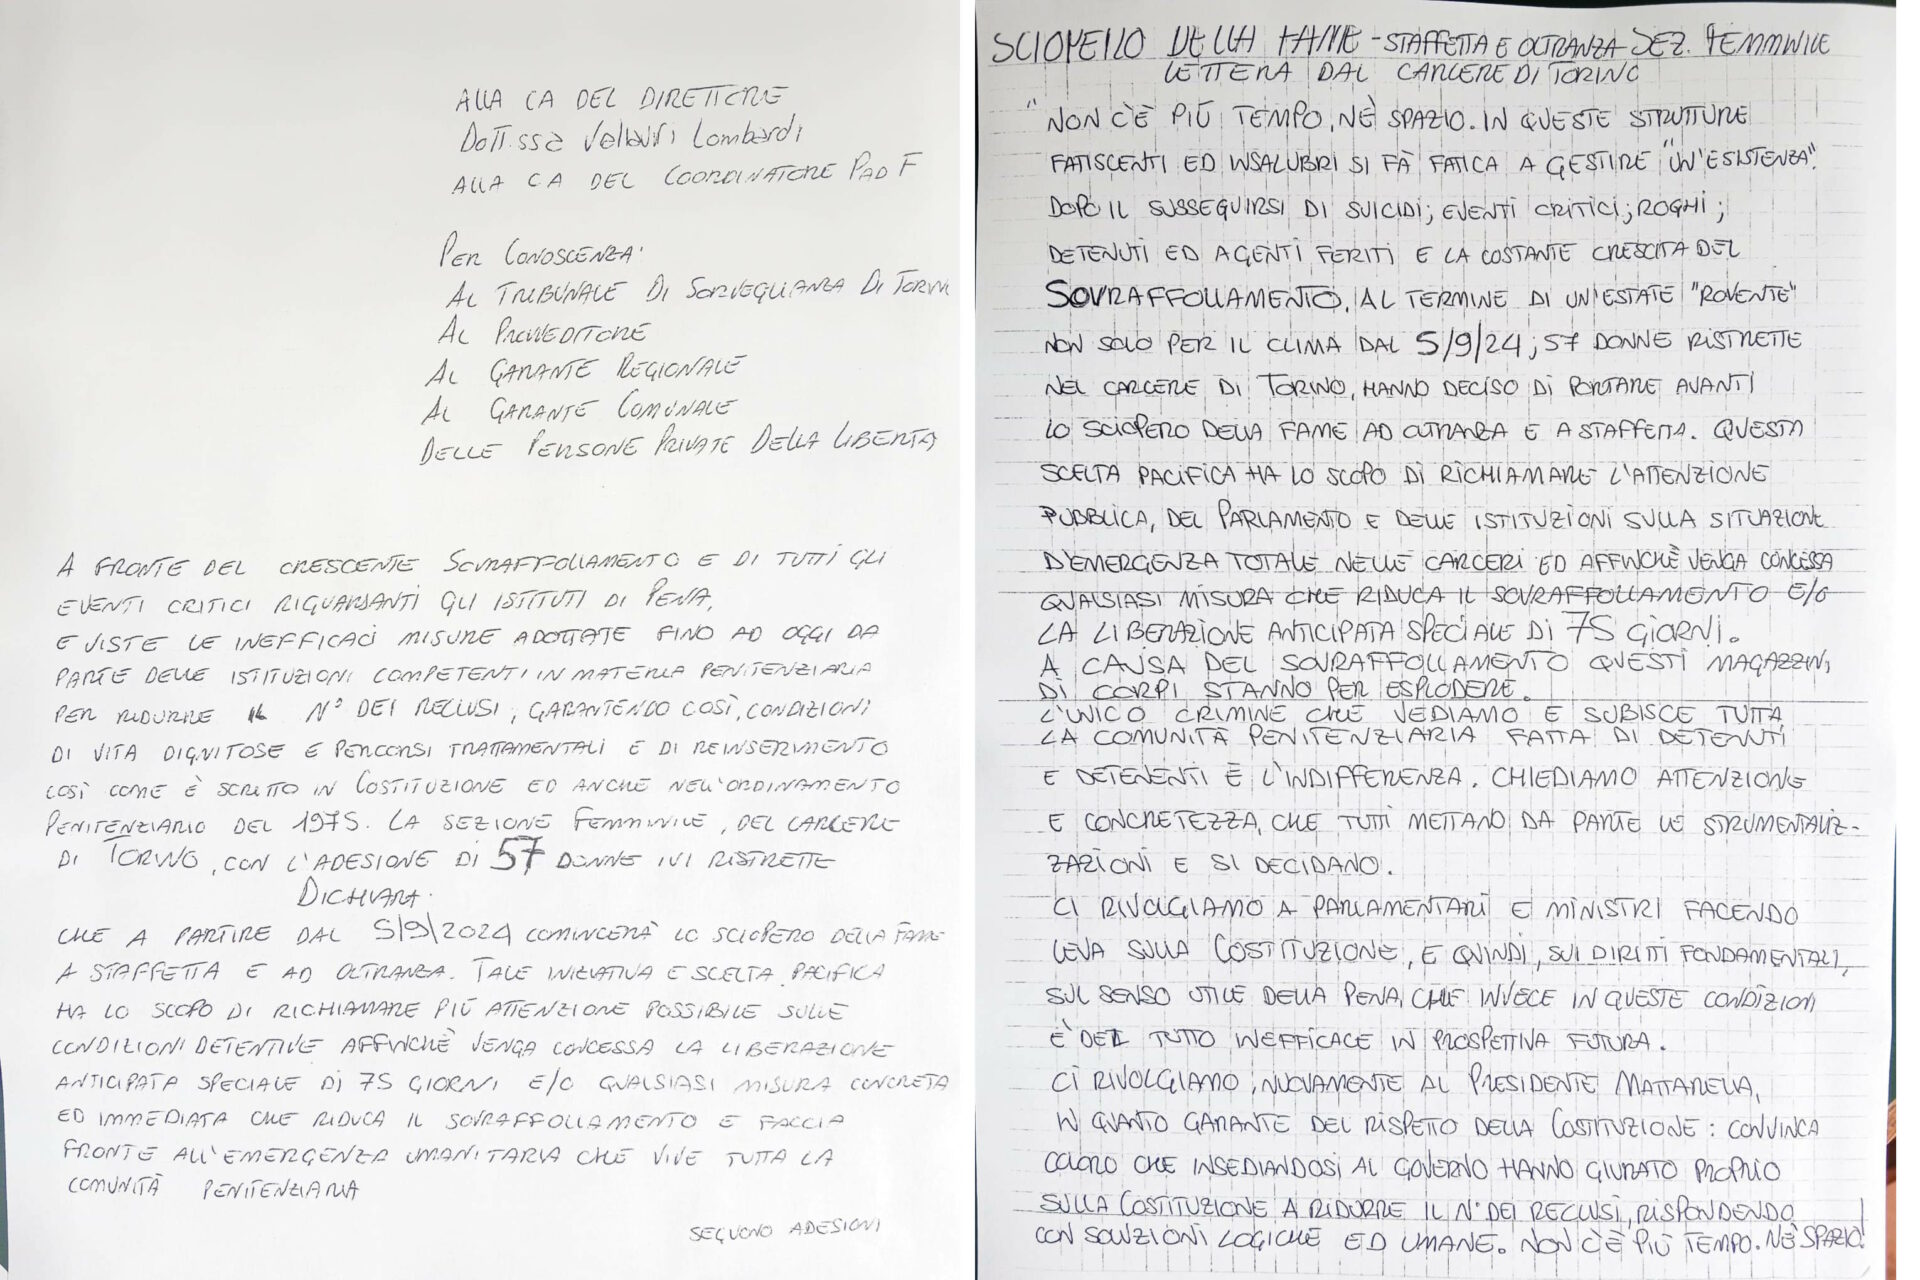 ALLA CA DEL DIRETTORE
Dott.ssa Lombardi
ALLA CA DEL COORDINATORE PAD F
PER CONOSCENZA:
AL TRIBUNALE DI SORVEGLIANZA DI TORINO
AL PROVVEDITORE
AL GARANTE REGIONALE
AL GARANTE COMUNALE
DELLE PERSONE PRIVATE DELLA LIBERTÀ
A FRONTE DEL CRESCENTE SOVRAFFOLLAMENTO E DI TUTTI GLI
EVENTI CRITICI RIGUARDANTI GLI ISTITUTI DI PENA,
E VISTE LE INEFFICACI MISURE ADOTTATE FINO AD OGGI DA
PARTE DELLE ISTITUZIONI COMPETENTI IN MATERIA PENITENZIARIA
PER RIDURRE IL N° DEI RECLUSI, GARANTENDO COSÌ, CONDIZIONI
DI VITA DIGNITOSE E PERCORSI TRATTAMENTALI E DI REINSERIMENTO
COSÌ COME È SCRITTO IN COSTITUZIONE ED ANCHE NELL'ORDINAMENTO
PENITENZIARIO DEL 1975. LA SEZIONE FEMMINILE, DEL CARCERE
DI TORINO, CON L'ADESIONE DI 57 DONNE IVI RISTRETTE
DICHIARA:
CHE A PARTIRE DAL 5/9/2024 COMINCERÀ LO SCIOPERO DELLA FAME
A STAFFETTA E AD OLTRANZA. TALE INIZIATIVA E SCELTA PACIFICA
HA LO SCOPO DI RICHIAMARE PIÙ ATTENZIONE POSSIBILE SULLE
CONDIZIONI DETENTIVE AFFINCHÈ VENGA CONCESSA LA LIBERAZIONE
ANTICIPATA SPECIALE DI 75 GIORNI E/O QUALSIASI MISURA CONCRETA
ED IMMEDIATA CHE RIDUCA IL SOVRAFFOLLAMENTO E FACCIA
FRONTE ALL'EMERGENZA UMANITARIA CHE VIVE TUTTA LA
COMUNITÀ PENITENZIARIA
SEGUONO ADESIONI
SCIOPERO DELLA FAME - STAFFETTA E OLTRANZA SEZ. FEMMINILE
LETTERA DAL CARCERE DI TORINO
"NON C'È PIÙ TEMPO, NÈ SPAZIO. IN QUESTE STRUTTURE
FATISCENTI ED INSALUBRI SI FÀ FATICA A GESTIRE "UN'ESISTENZA".
DOPO IL SUSSEGUIRSI DI SUICIDI; EVENTI CRITICI; ROGHI;
DETENUTI ED AGENTI FERITI E LA COSTANTE CRESCITA DEL
SOVRAFFOLLAMENTO. AL TERMINE DI UN'ESTATE "ROVENTE"
NON SOLO PER IL CLIMA DAL 5/9/24; 57 DONNE RISTRETTE
NEL CARCERE DI TORINO, HANNO DECISO DI PORTARE AVANTI
LO SCIOPERO DELLA FAME AD OLTRANZA E A STAFFETTA. QUESTA
SCELTA PACIFICA HA LO SCOPO DI RICHIAMARE L'ATTENZIONE
PUBBLICA, DEL PARLAMENTO E DELLE ISTITUZIONI SULLA SITUAZIONE
D'EMERGENZA TOTALE NELLE CARCERI ED AFFINCHÈ VENGA CONCESSA
QUALSIASI MISURA CHE RIDUCA IL SOVRAFFOLLAMENTO E/O
LA LIBERAZIONE ANTICIPATA SPECIALE DI 75 GIORNI.
A CAUSA DEL SOVRAFFOLLAMENTO QUESTI MAGAZZINI
DI CORPI STANNO PER ESPLODERE.
L'UNICO CRIMINE CHE VEDIAMO E SUBISCE TUTTA
LA COMUNITÀ PENITENZIARIA FATTA DI DETENUTI
E DETENENTI È L'INDIFFERENZA. CHIEDIAMO ATTENZIONE
E CONCRETEZZA, CHE TUTTI METTANO DA PARTE LE STRUMENTALIZ-
ZAZIONI E SI DECIDANO.
CI RIVOLGIAMO A PARLAMENTARI E MINISTRI FACENDO
LEVA SULLA COSTITUZIONE, E QUINDI, SUI DIRITTI FONDAMENTALI,
SUL SENSO UTILE DELLA PENA, CHE INVECE IN QUESTE CONDIZIONI
È DEL TUTTO INEFFICACE IN PROSPETTIVA FUTURA.
CI RIVOLGIAMO, NUOVAMENTE AL PRESIDENTE MATTARELLA,
IN QUANTO GARANTE DEL RISPETTO DELLA COSTITUZIONE: CONVINCA
COLORO CHE INSEDIANDOSI AL GOVERNO HANNO GIURATO PROPRIO
SULLA COSTITUZIONE A RIDURRE IL N° DEI RECLUSI, RISPONDENDO
CON SOLUZIONI LOGICHE ED UMANE. NON C'È PIÙ TEMPO. NÈ SPAZIO!